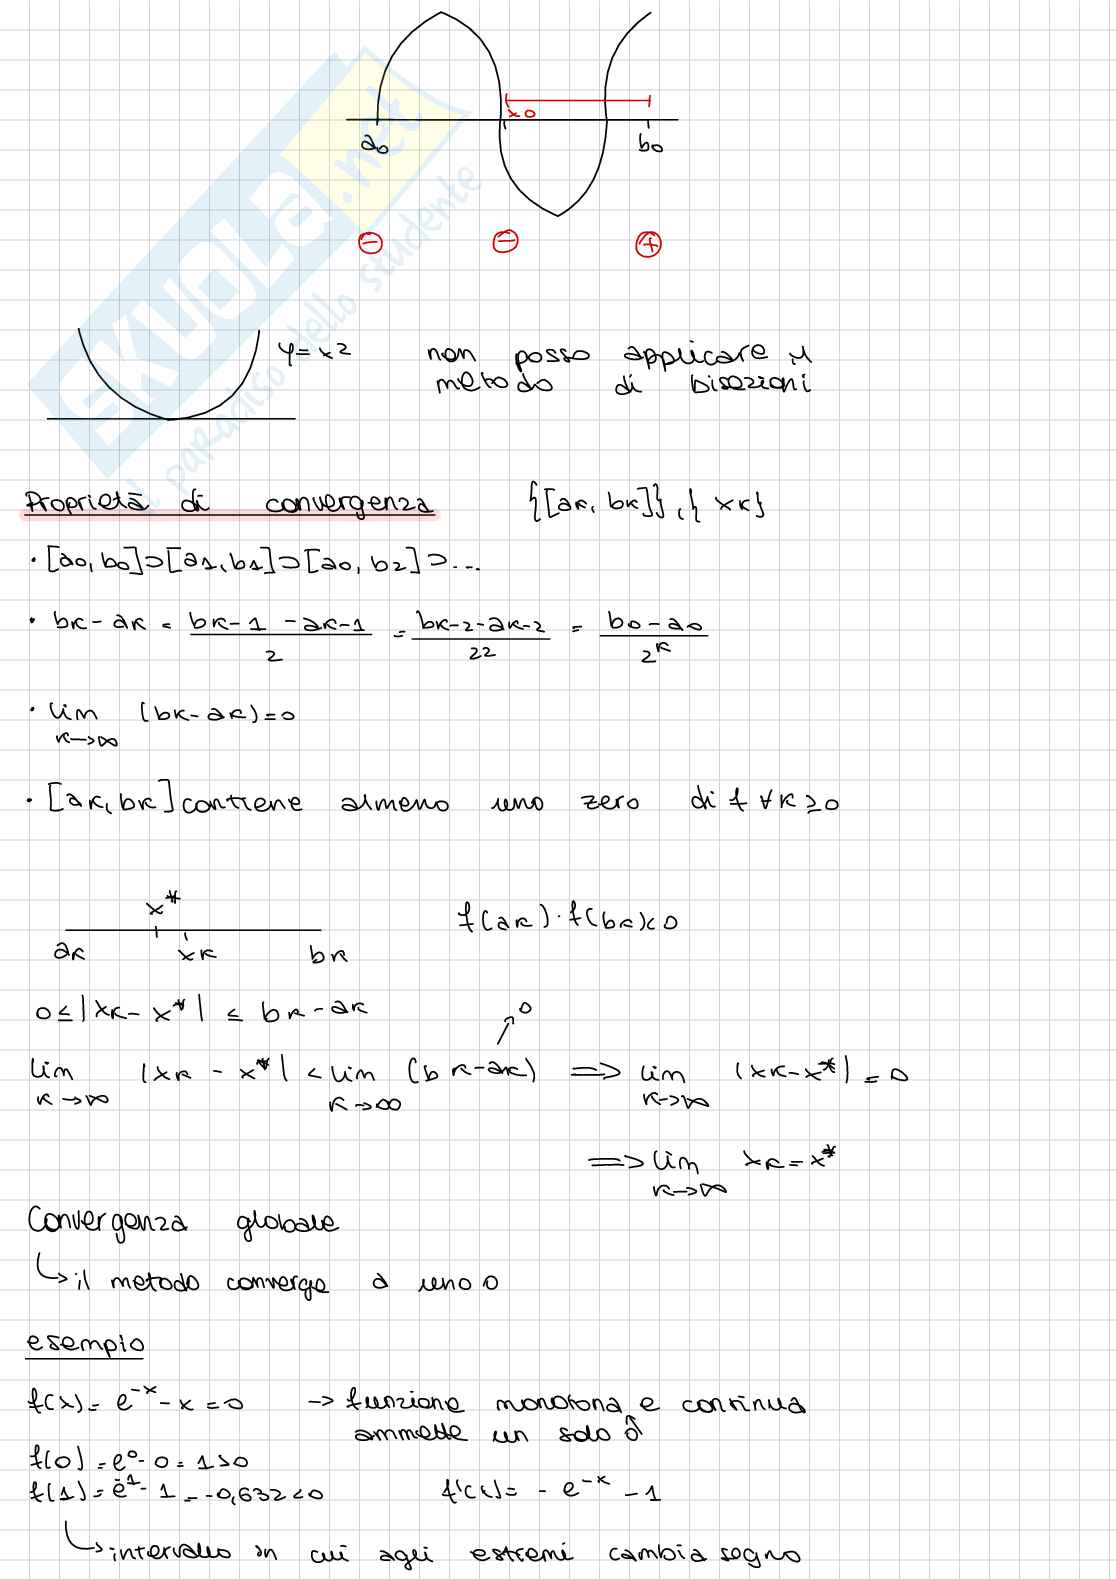 a0 x0 b0
⊖ ⊖ ⊕
y = x2 non posso applicare il
metodo di bisezioni
SKUOLA.net
il paradiso dello studente
Proprietà di convergenza {[aK, bK]}, { xK}
• [a0, b0]⊃[a1, b1]⊃[a0, b2]⊃...
• bK - aK = (bK-1 - aK-1)/2 = (bK-2 - aK-2)/22 = (b0 - a0)/2^K
• lim K→∞ (bK - aK) = 0
• [aK, bK] contiene almeno uno zero di f ∀K ≥ 0
x*
aK xK bK f(aK) · f(bK) < 0
0 ≤ |xK - x*| ≤ bK - aK
0
lim K→∞ |xK - x*| < lim K→∞ (bK - aK) ⟹ lim K→∞ |xK - x*| = 0
⟹ lim K→∞ xK = x*
Convergenza globale
↳ il metodo converge a uno 0
esempio
f(x) = e^-x - x = 0 → funzione monotona e continua
ammette un solo 0
f(0) = e^0 - 0 = 1 > 0
f(1) = e^-1 - 1 = -0,632 < 0 f'(x) = - e^-x - 1
↳ intervallo in cui agli estremi cambia segno